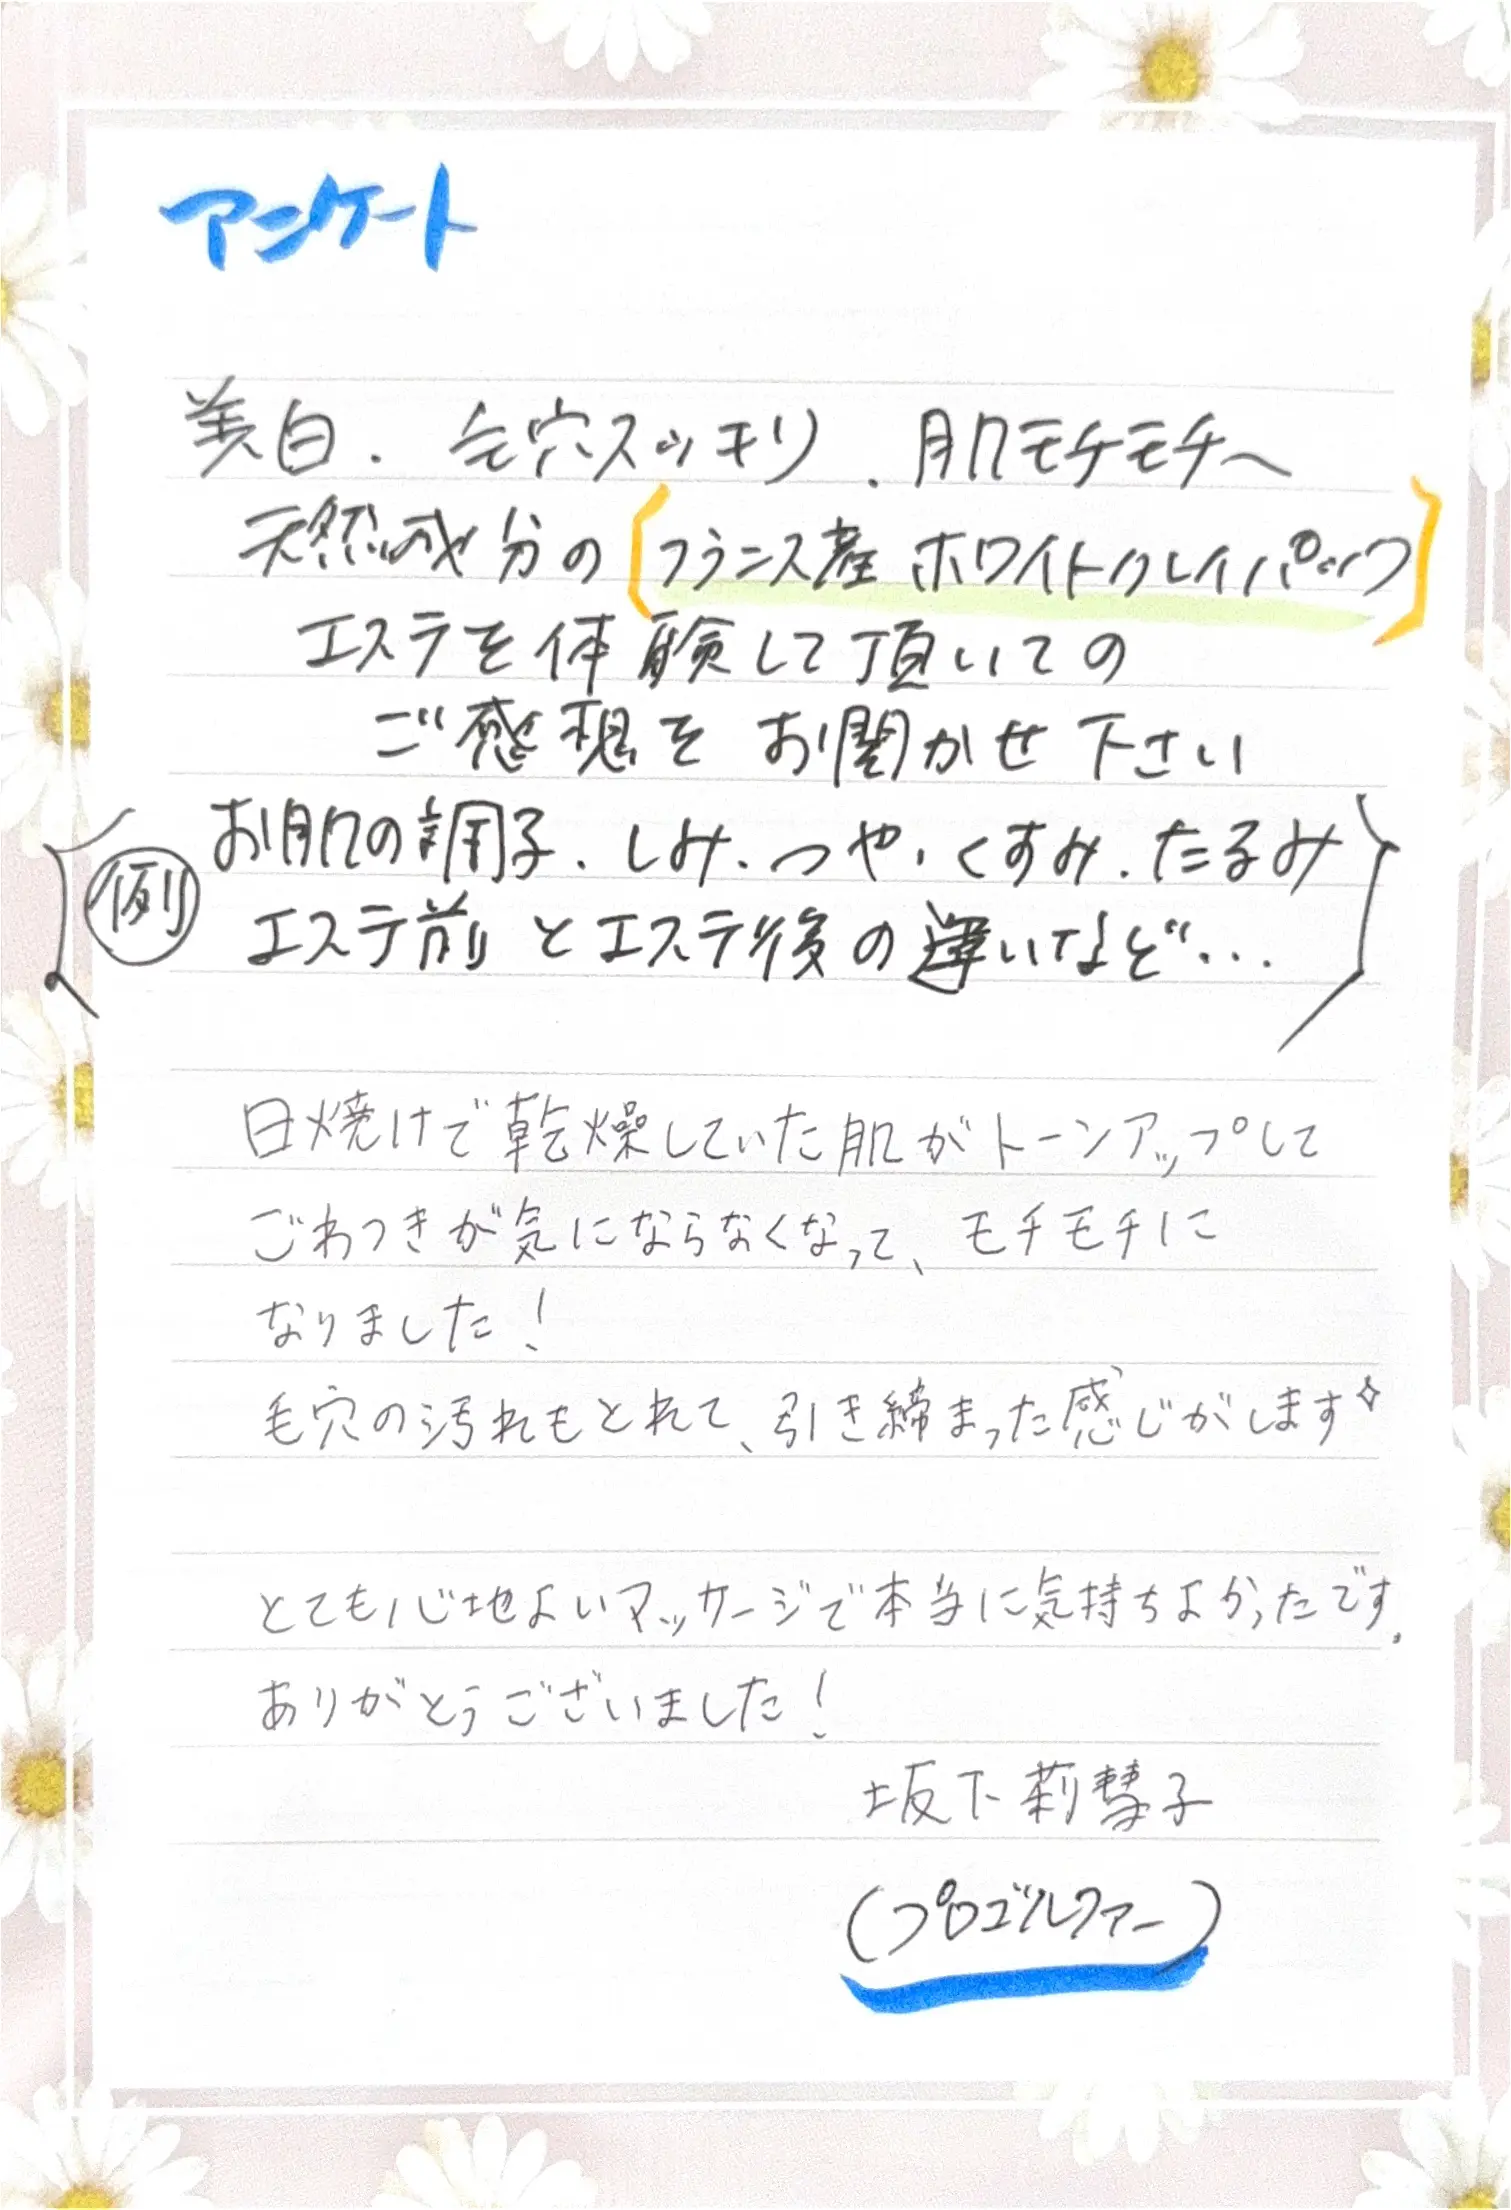 アンケート
美白．毛穴スッキリ．肌モチモチへ
天然成分の〔フランス産 ホワイトクレイパック〕
エステを体験して頂いての
ご感想を お聞かせ下さい
例 お肌の調子．しみ．つや．くすみ．たるみ
エステ前とエステ後の違いなど…
日焼けで乾燥していた肌がトーンアップして
ごわつきが気にならなくなって、モチモチに
なりました！
毛穴の汚れもとれて、引き締まった感じがします✧
とても心地よいマッサージで本当に気持ちよかったです。
ありがとうございました！
坂下莉彗子
（プロゴルファー）